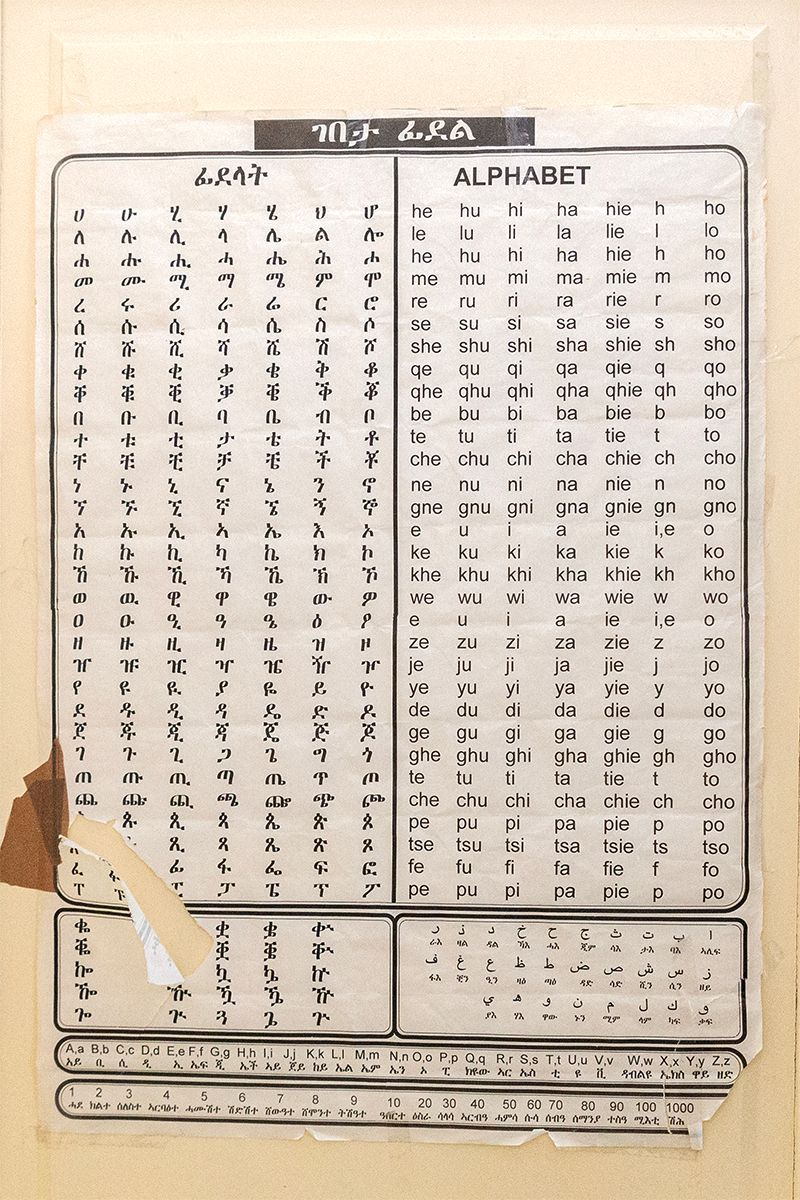 ገበታ ፊደል
ፊደላት
ሀ ሁ ሂ ሃ ሄ ህ ሆ
ለ ሉ ሊ ላ ሌ ል ሎ
ሐ ሑ ሒ ሓ ሔ ሕ ሖ
መ ሙ ሚ ማ ሜ ም ሞ
ረ ሩ ሪ ራ ሬ ር ሮ
ሰ ሱ ሲ ሳ ሴ ስ ሶ
ሸ ሹ ሺ ሻ ሼ ሽ ሾ
ቀ ቁ ቂ ቃ ቄ ቅ ቆ
ቐ ቑ ቒ ቓ ቔ ቕ ቖ
በ ቡ ቢ ባ ቤ ብ ቦ
ተ ቱ ቲ ታ ቴ ት ቶ
ቸ ቹ ቺ ቻ ቼ ች ቾ
ነ ኑ ኒ ና ኔ ን ኖ
ኘ ኙ ኚ ኛ ኜ ኝ ኞ
አ ኡ ኢ ኣ ኤ እ ኦ
ከ ኩ ኪ ካ ኬ ክ ኮ
ኸ ኹ ኺ ኻ ኼ ኽ ኾ
ወ ዉ ዊ ዋ ዌ ው ዎ
ዐ ዑ ዒ ዓ ዔ ዕ ዖ
ዘ ዙ ዚ ዛ ዜ ዝ ዞ
ዠ ዡ ዢ ዣ ዤ ዥ ዦ
የ ዩ ዪ ያ ዬ ይ ዮ
ደ ዱ ዲ ዳ ዴ ድ ዶ
ጀ ጁ ጂ ጃ ጄ ጅ ጆ
ገ ጉ ጊ ጋ ጌ ግ ጎ
ጠ ጡ ጢ ጣ ጤ ጥ ጦ
ጨ ጩ ጪ ጫ ጬ ጭ ጮ
ጱ ጲ ጳ ጴ ጵ ጶ
ጺ ጻ ጼ ጽ ጾ
ፈ ፊ ፋ ፌ ፍ ፎ
ፐ ፓ ፔ ፕ ፖ
ALPHABET
he hu hi ha hie h ho
le lu li la lie l lo
he hu hi ha hie h ho
me mu mi ma mie m mo
re ru ri ra rie r ro
se su si sa sie s so
she shu shi sha shie sh sho
qe qu qi qa qie q qo
qhe qhu qhi qha qhie qh qho
be bu bi ba bie b bo
te tu ti ta tie t to
che chu chi cha chie ch cho
ne nu ni na nie n no
gne gnu gni gna gnie gn gno
e u i a ie i,e o
ke ku ki ka kie k ko
khe khu khi kha khie kh kho
we wu wi wa wie w wo
e u i a ie i,e o
ze zu zi za zie z zo
je ju ji ja jie j jo
ye yu yi ya yie y yo
de du di da die d do
ge gu gi ga gie g go
ghe ghu ghi gha ghie gh gho
te tu ti ta tie t to
che chu chi cha chie ch cho
pe pu pi pa pie p po
tse tsu tsi tsa tsie ts tso
fe fu fi fa fie f fo
pe pu pi pa pie p po
ቈ ቋ ቌ ቍ
ቘ ቛ ቜ ቝ
ኰ ኳ ኴ ኵ
ዀ ዅ ዃ ዄ ዅ
ጐ ጕ ጓ ጔ ጕ
ا ب ت ث ج ح خ د ذ ر
ኣሊፍ ባእ ታእ ሳእ ጂም ሓእ ኻእ ዳል ዛል ራእ
ز س ش ص ض ط ظ ع غ ف
ዘይ ሲን ሺን ሳድ ዳድ ጣዕ ዓን ፋእ
و ك ل م ن و ه ي
ቃፍ ካፍ ላም ሚም ኑን ዋው ሃእ ያእ
A,a B,b C,c D,d E,e F,f G,g H,h I,i J,j K,k L,l M,m N,n O,o P,p Q,q R,r S,s T,t U,u V,v W,w X,x Y,y Z,z
ኣይ ቢ ሲ ዲ ኢ ኤፍ ጂ ኤች ኣይ ጀይ ከይ ኤል ኤም ኤን ኦ ፒ ክዩው ኣር ኤስ ቲ ዩ ቪ ዳብልዩ ኤክስ ዋይ ዘድ
1 2 3 4 5 6 7 8 9 10 20 30 40 50 60 70 80 90 100 1000
ሓደ ክልተ ሰለስተ ኣርባዕተ ሓሙሽተ ሽድሽተ ሸውዓተ ሸሞንተ ትሽዓተ ዓሰርተ ዕስራ ሳላሳ ኣርብዓ ሓምሳ ሱሳ ሰብዓ ሰማንያ ተስዓ ሚእቲ ሽሕ